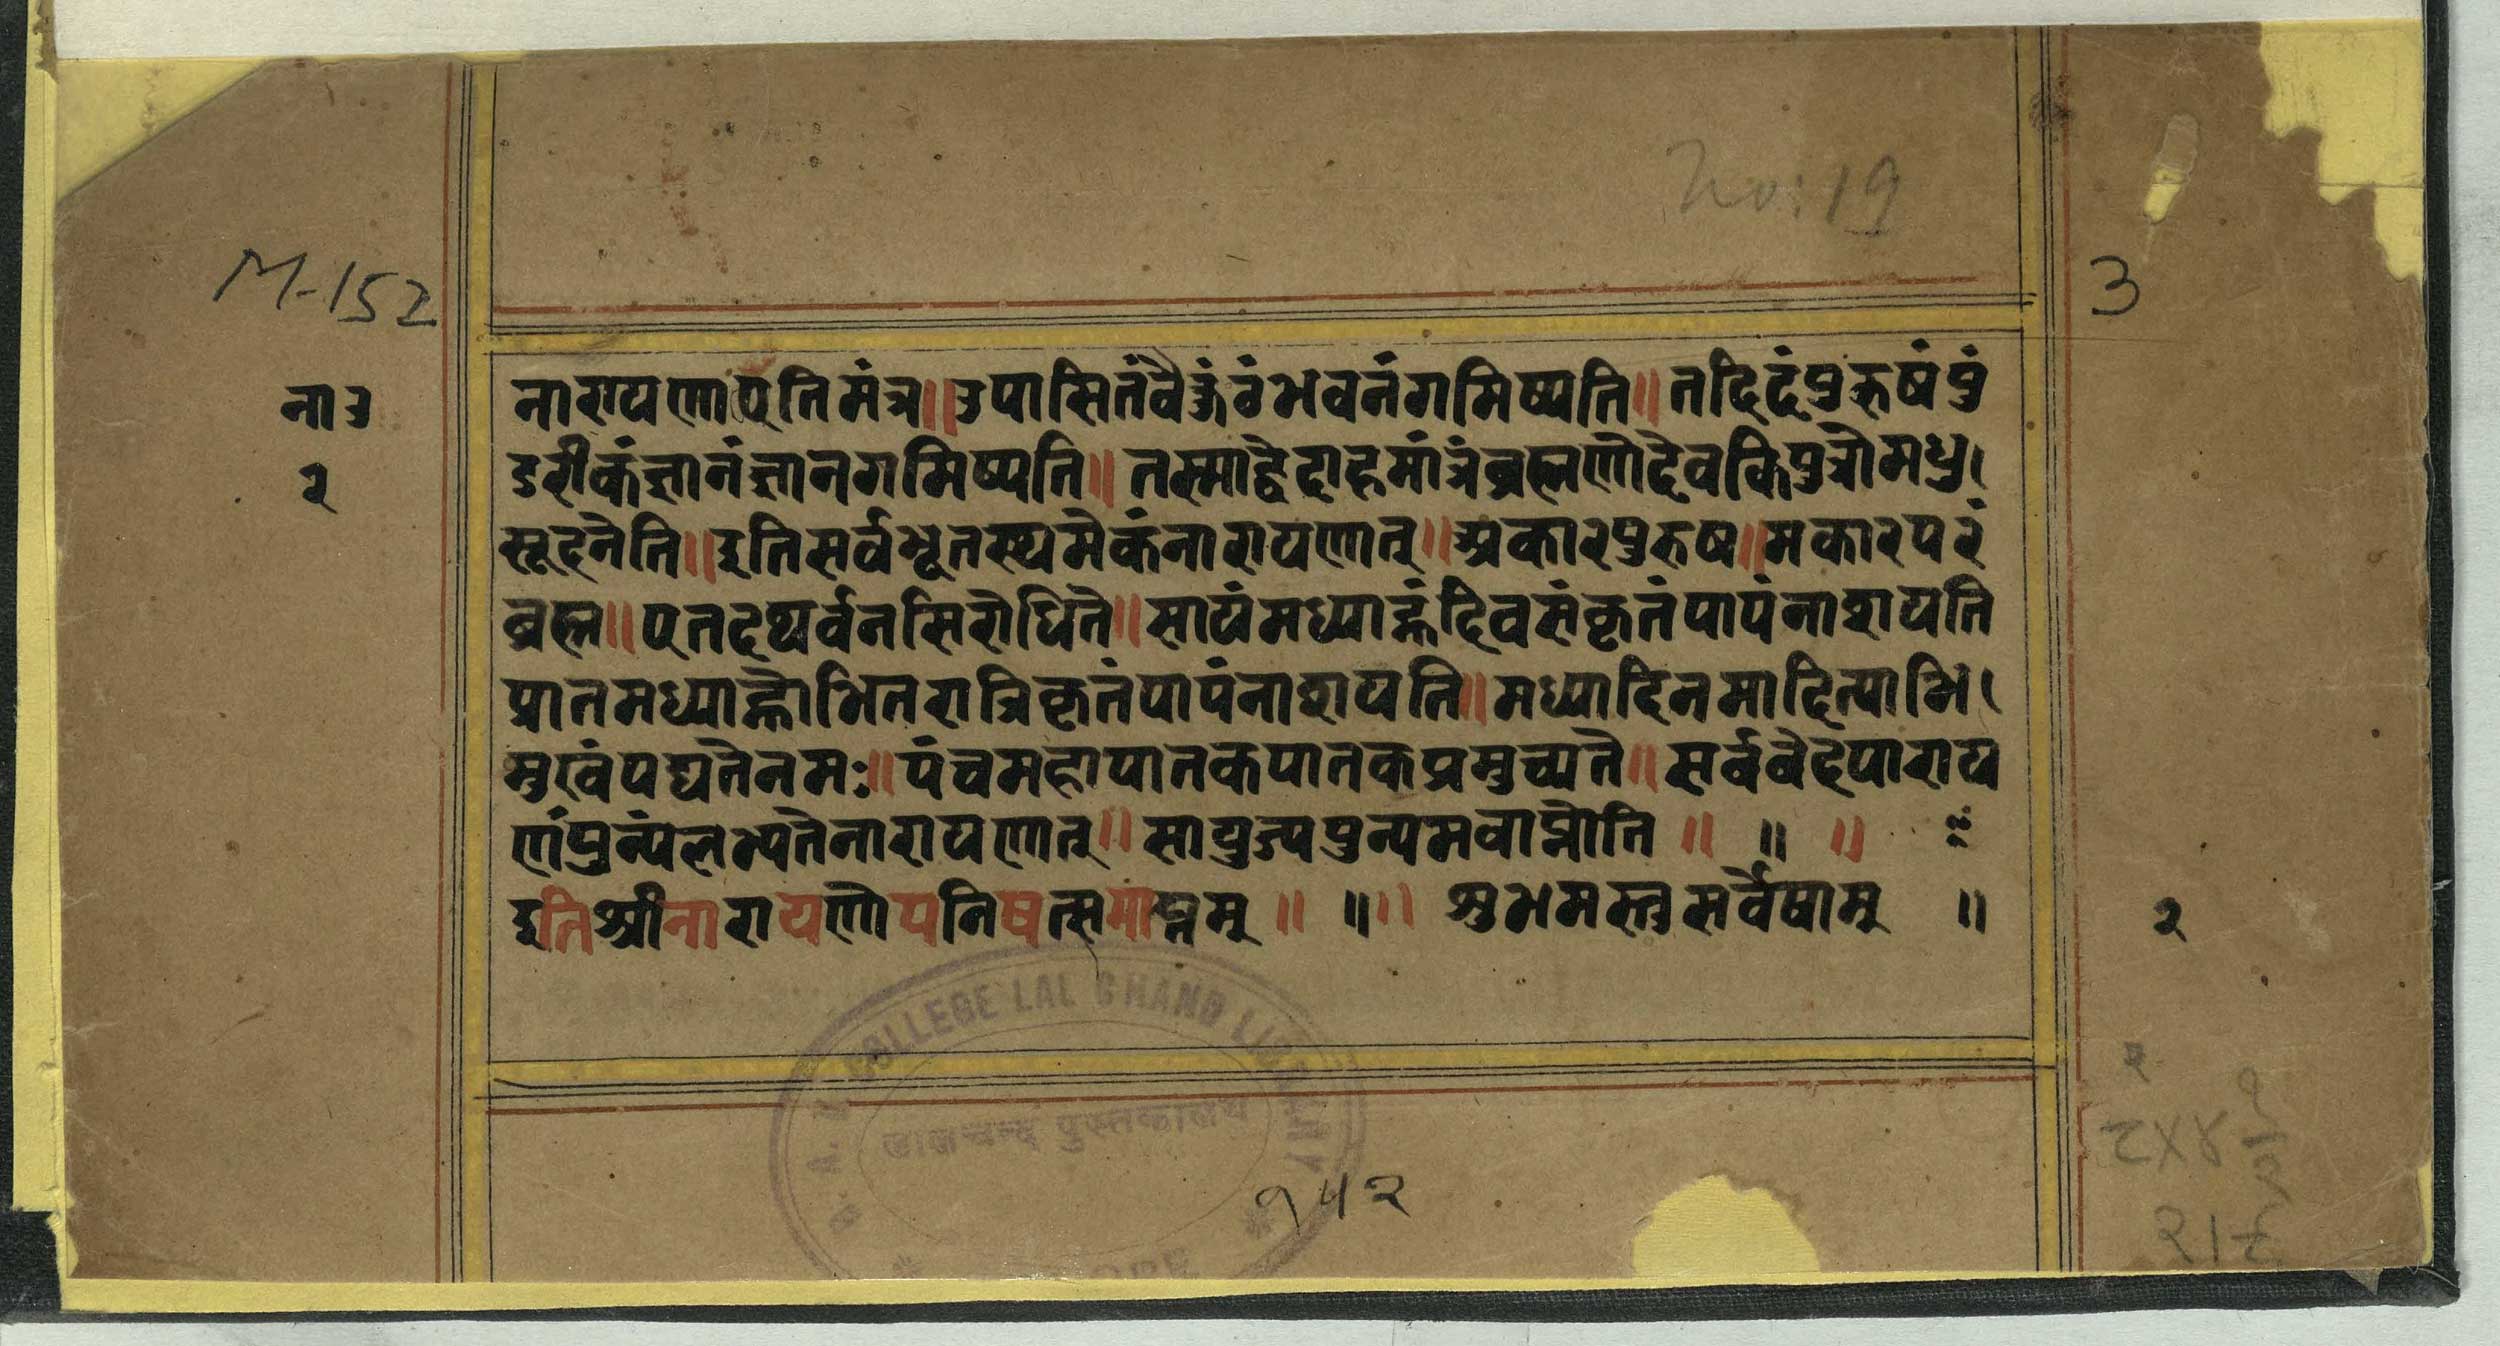 No: 19
M-152
3
ना उ
२
नारायणाएतिमंत्र॥उपासितंवैकुंठंभवनंगमिष्यति॥तदिदंपुरुषंपुं
डरीकंज्ञानंज्ञानगमिष्यति॥तस्माद्वेदाहमांत्रंब्रह्मणोदेवकिपुत्रोमधु।
सूदनेति॥इतिसर्वभूतस्थमेकंनारायणात्॥अकारपुरुष॥मकारपरं
ब्रह्म॥एतदथर्वनसिरोधिते॥सायंमध्याह्नंदिवसंकृतंपापंनाशयति
प्रातमध्याह्नोभितरात्रिकृतंपापंनाशयति॥मध्यादिनमादित्याभि।
मुखंपद्यतेनमः॥पंचमहापातकपातकप्रमुच्यते॥सर्ववेदपाराय
णंपुन्यंलभ्यतेनारायणात्॥सायुज्यपुन्यमवाप्नोति॥ ॥ ॥
इतिश्रीनारायणोपनिषत्समाप्तम्॥ ॥॥ शुभमस्तुसर्वेषाम् ॥
२
COLLEGE LAL CHAND
लालचन्द पुस्तकालय
१५२